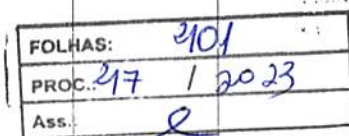 FOLHAS: 401
PROC.: 217 / 2023
Ass.